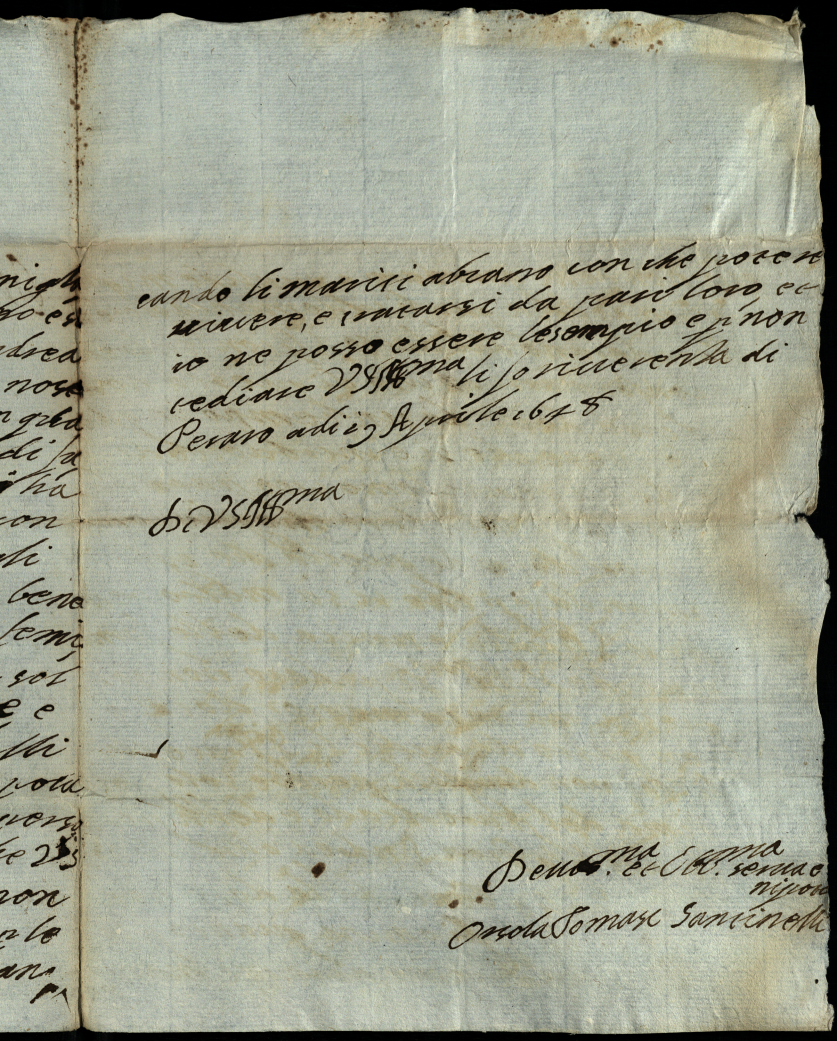 nigli
no es
ndrea
nose
n gra
di fa
i ha
con
gli
bene
semi
sol
e e
elli
pota
verso
he VS
non
n le
an
cando li mariti abiano con che potere
vivere, e tratarsi da pari loro, et
io ne posso essere lesempio e p non
tediare VSIllma li fo riverenza di
Pesaro adi 19 Aprile 1648
Di VSIllma
Devma. et Obma serva e
nipote
Orsola Tomasi Santinelli